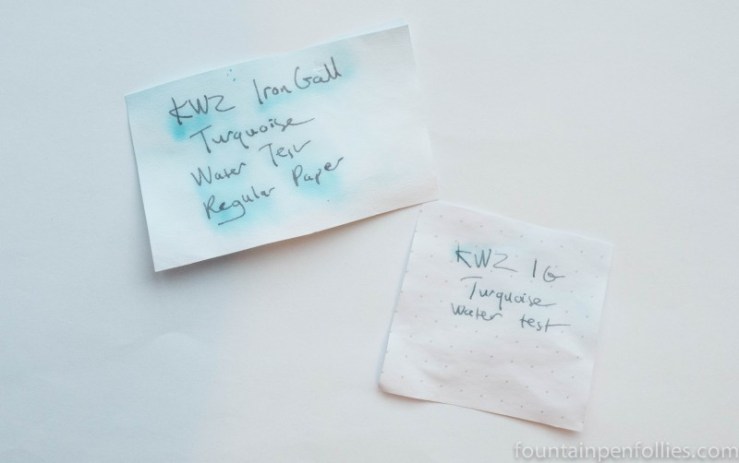 KWZ Iron Gall
Turquoise
Water Test
Regular Paper
KWZ IG
Turquoise
water test
fountainpenfollies.com